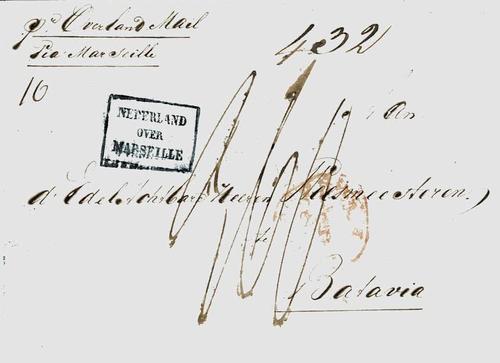 pr Overland Mail
Via Marseille
4.32
10
NEDERLAND
OVER
MARSEILLE
Aan
d' Edel Achtbare Heeren Weesmeesteren
te
Batavia